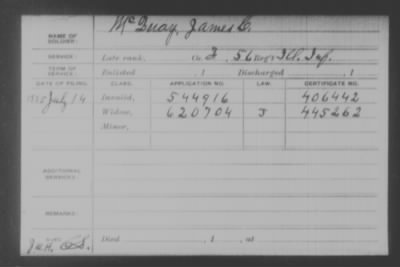 NAME OF SOLDIER: McQuay, James C.
SERVICE: Late rank, Co. F, 56 Reg't Ill. Inf.
TERM OF SERVICE: Enlisted , 1 Discharged , 1
DATE OF FILING. CLASS. APPLICATION NO. LAW. CERTIFICATE NO.
1885 July 14 Invalid, 544916 406442
Widow, 620704 J 445262
Minor,
ADDITIONAL SERVICES:
REMARKS:
Died , 1 , at